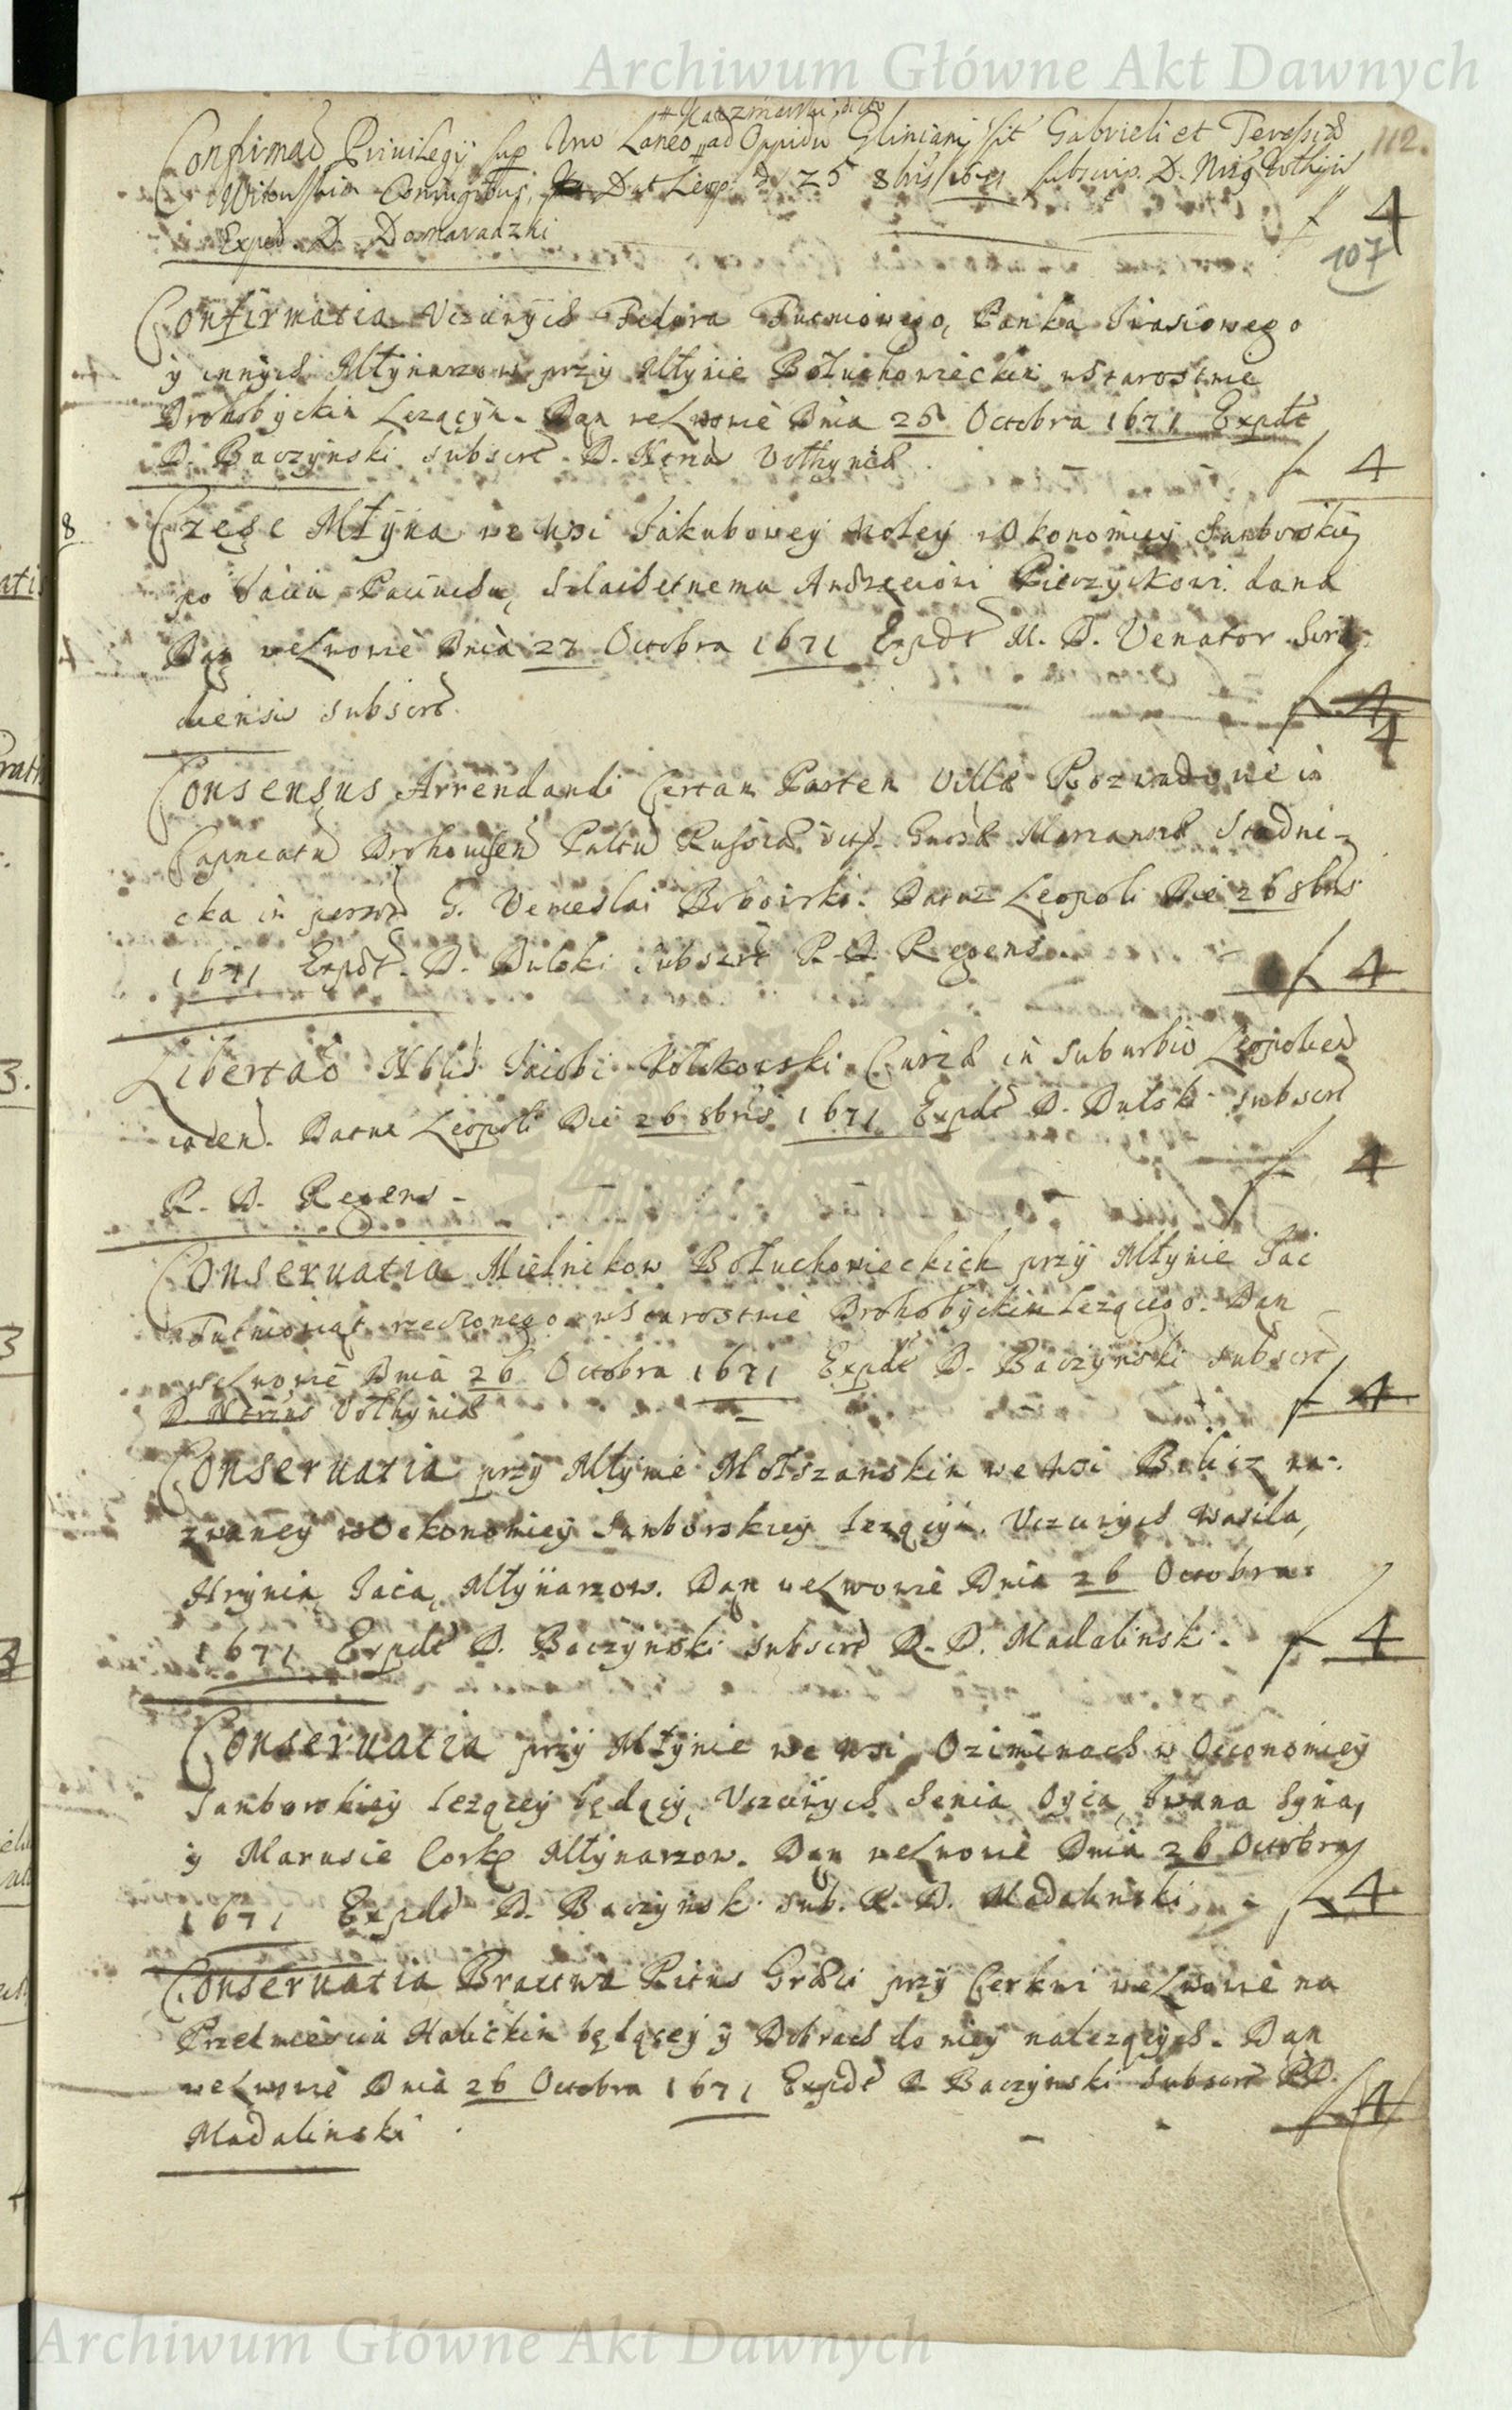 Archiwum Główne Akt Dawnych
# Kaczmarski dicto
112.
Confirmao Privilegÿ sup Uno Laneo # ad Oppidu Gliniani sit Gabrieli et Teressiæ
Witowskim Coniugibus, Dat Leop. d 25 8bris 1671 subscrip. D.
Exped. D. Domaradzki
f 4
107
Confirmatia Uczciwÿch Fedora Futniowego, Panka Iwasiowego
ÿ innÿch Młÿnarzow przÿ Młÿnie Bołuchowieckim w Starostwie
Drohobÿckim Lezącÿm. Dan we Lwowie Dnia 25 Octobra 1671 Expdt
D. Baczÿnski subscrt D. Notrius Volhyniæ
f 4
8
Częsc Młÿna we Wsi Jakubowey Woley w Okonomiey Samborskiey
po Jaciu Pacunchu, Szlachetnemu Andrzeiowi Pieczyckowi dana
Dan we Lwowie Dnia 27 Octobra 1671 Expdt M. D. Venator Sira-
diensis subscrt.
f 4
4
Consensus Arrendandi Certam Partem Villæ Rozwadowie in
Capneatu Drohouicen Paltu Russiæ Gnosæ Mariannæ Stadni-
cka in person G. Venceslai Bobowski. Datum Leopoli Die 26 8bris
1671 Expdt. D. Dulski Subscrt R. D. Regens.
f 4
Libertao Nblis Jacobi Wolikowski Curiæ in Suburbio Leopolien
iacen. Datum Leopoli Die 26 8bris 1671 Expdt D. Dulski subscrt
R. D. Regens -
f 4
Conseruatia Mielnikow Bołuchowieckich przÿ Młÿnie Jac
Futniowiąt rzeczonego w Starostwie Drohobÿckim lezącego. Dan
we Lwowie Dnia 26 Octobra 1671 Expdt D. Baczÿnski subscrt
D. Notrius Volhÿniæ
f 4
Conseruatia przÿ Młÿnie Mołszanskim we Wsi Bilicz na-
zwaney w Oekonomiey Samborskiey lezącÿm. Uczciwÿch Wasila,
Hrÿnia, Jaca, Młÿnarzow. Dan we Lwowie Dnia 26 Octobra
1671 Expdt D. Baczÿnski subscrt R. D. Madalinski.
f 4
Conseruatia przÿ Młÿnie we Wsi Oziminach w Oeconomieÿ
Samborskieÿ lezącey będącÿ, Uczciwÿch Senia Oyca, Iwana Sÿna,
ÿ Marusie Corkę Młÿnarzow. Dan we Lwowie Dnia 26 Octobra
1671 Expdt D. Baczÿnsk. sub. R. D. Madalinski
f 4
Conseruatia Bractwa Ritus Græci przÿ Cerkwi we Lwowie na
Przedmiesciu Halickim będącey ÿ Dobrach do niey nalezącÿch. Dan
we Lwowie Dnia 26 Octobra 1671 Expdt D Baczÿnski Subscrt R D.
Madalinski
f 4
Archiwum Główne Akt Dawnych